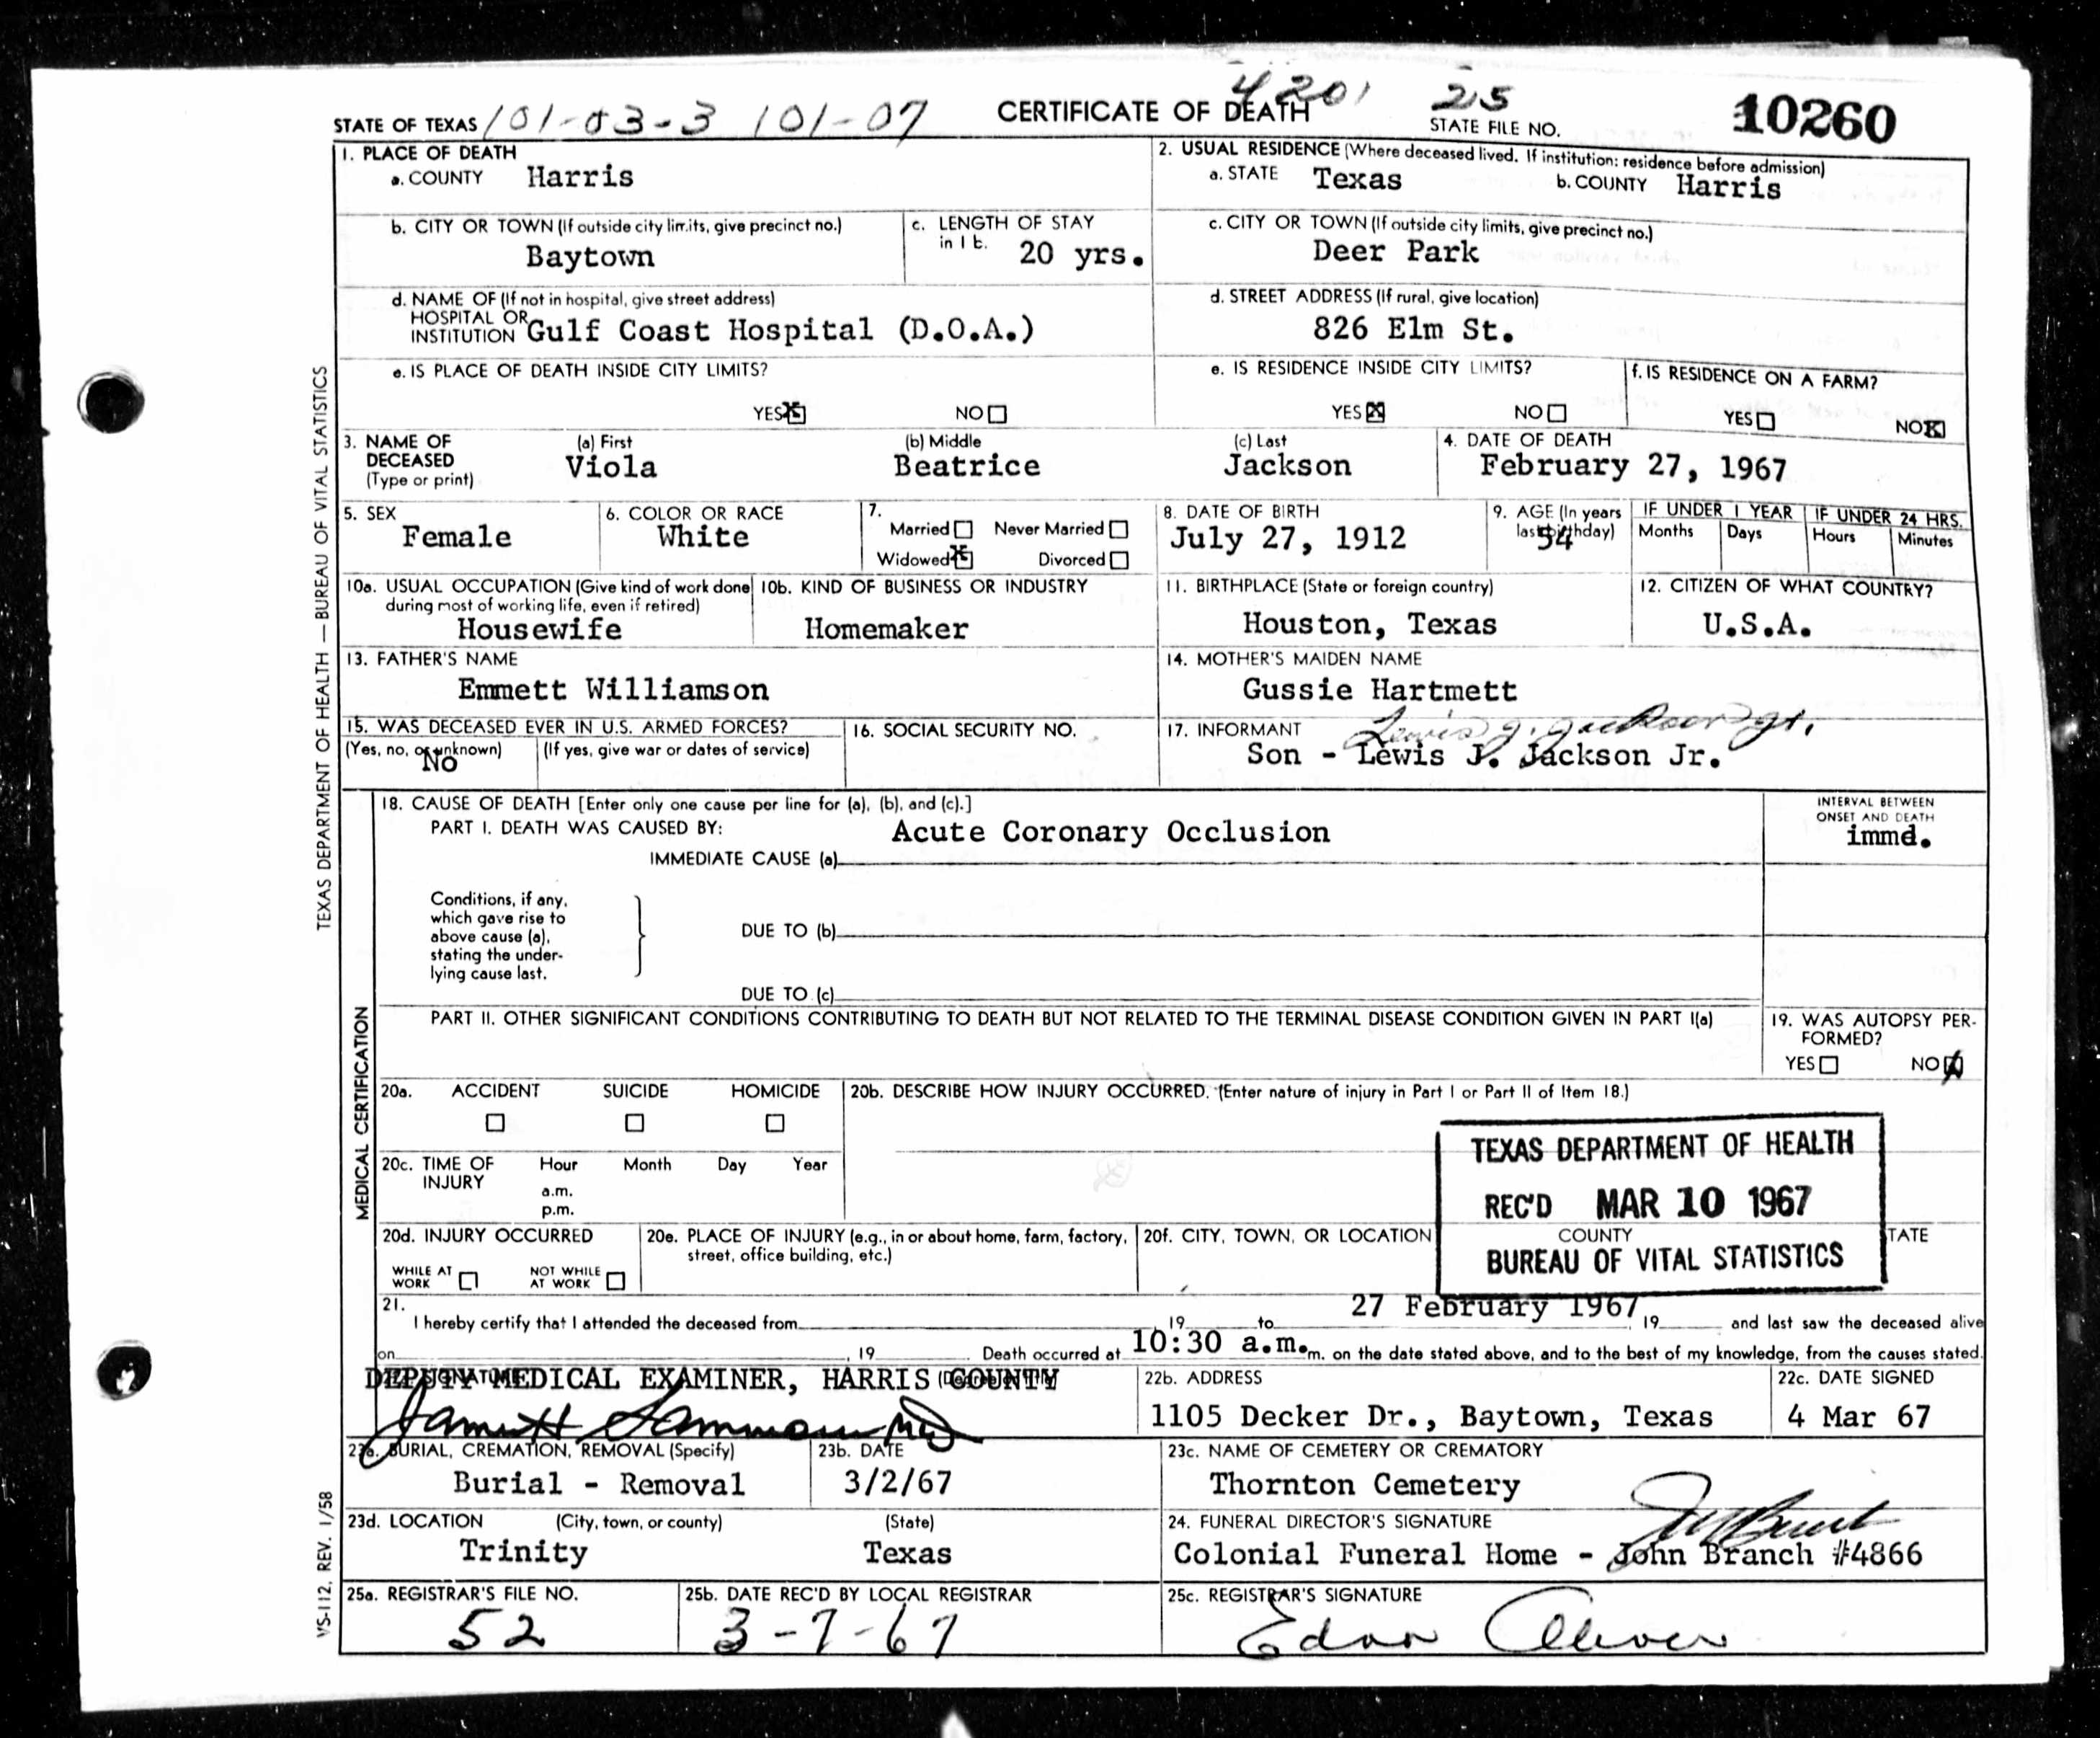 STATE OF TEXAS 101-03-3 101-07 CERTIFICATE OF DEATH 4201 25 STATE FILE NO. 10260
TEXAS DEPARTMENT OF HEALTH — BUREAU OF VITAL STATISTICS
1. PLACE OF DEATH
a. COUNTY Harris
2. USUAL RESIDENCE (Where deceased lived. If institution: residence before admission)
a. STATE Texas b. COUNTY Harris
b. CITY OR TOWN (If outside city limits, give precinct no.)
Baytown
c. LENGTH OF STAY
in 1 b. 20 yrs.
c. CITY OR TOWN (If outside city limits, give precinct no.)
Deer Park
d. NAME OF (If not in hospital, give street address)
HOSPITAL OR
INSTITUTION Gulf Coast Hospital (D.O.A.)
d. STREET ADDRESS (If rural, give location)
826 Elm St.
e. IS PLACE OF DEATH INSIDE CITY LIMITS?
YES X NO
e. IS RESIDENCE INSIDE CITY LIMITS?
YES X NO
f. IS RESIDENCE ON A FARM?
YES NO X
3. NAME OF
DECEASED
(Type or print)
(a) First
Viola
(b) Middle
Beatrice
(c) Last
Jackson
4. DATE OF DEATH
February 27, 1967
5. SEX
Female
6. COLOR OR RACE
White
7.
Married Never Married
Widowed X Divorced
8. DATE OF BIRTH
July 27, 1912
9. AGE (In years
last birthday)
54
IF UNDER 1 YEAR
Months Days
IF UNDER 24 HRS.
Hours Minutes
10a. USUAL OCCUPATION (Give kind of work done
during most of working life, even if retired)
Housewife
10b. KIND OF BUSINESS OR INDUSTRY
Homemaker
11. BIRTHPLACE (State or foreign country)
Houston, Texas
12. CITIZEN OF WHAT COUNTRY?
U.S.A.
13. FATHER'S NAME
Emmett Williamson
14. MOTHER'S MAIDEN NAME
Gussie Hartmett
15. WAS DECEASED EVER IN U.S. ARMED FORCES?
(Yes, no, or unknown) (If yes, give war or dates of service)
No
16. SOCIAL SECURITY NO.
17. INFORMANT Lewis J. Jackson Jr.
Son - Lewis J. Jackson Jr.
MEDICAL CERTIFICATION
18. CAUSE OF DEATH [Enter only one cause per line for (a), (b), and (c).]
PART I. DEATH WAS CAUSED BY:
IMMEDIATE CAUSE (a) Acute Coronary Occlusion
INTERVAL BETWEEN
ONSET AND DEATH
immd.
Conditions, if any,
which gave rise to
above cause (a),
stating the under-
lying cause last.
DUE TO (b)
DUE TO (c)
PART II. OTHER SIGNIFICANT CONDITIONS CONTRIBUTING TO DEATH BUT NOT RELATED TO THE TERMINAL DISEASE CONDITION GIVEN IN PART I(a)
19. WAS AUTOPSY PER-
FORMED?
YES NO X
20a. ACCIDENT SUICIDE HOMICIDE
20b. DESCRIBE HOW INJURY OCCURRED. (Enter nature of injury in Part I or Part II of Item 18.)
20c. TIME OF
INJURY
Hour Month Day Year
a.m.
p.m.
TEXAS DEPARTMENT OF HEALTH
REC'D MAR 10 1967
BUREAU OF VITAL STATISTICS
20d. INJURY OCCURRED
WHILE AT
WORK
NOT WHILE
AT WORK
20e. PLACE OF INJURY (e.g., in or about home, farm, factory,
street, office building, etc.)
20f. CITY, TOWN, OR LOCATION COUNTY TATE
21.
I hereby certify that I attended the deceased from , 19 to 27 February 1967, 19 and last saw the deceased alive
on , 19 Death occurred at 10:30 a.m. m. on the date stated above, and to the best of my knowledge, from the causes stated.
DEPUTY MEDICAL EXAMINER, HARRIS COUNTY
22b. ADDRESS
1105 Decker Dr., Baytown, Texas
22c. DATE SIGNED
4 Mar 67
23a. BURIAL, CREMATION, REMOVAL (Specify)
Burial - Removal
23b. DATE
3/2/67
23c. NAME OF CEMETERY OR CREMATORY
Thornton Cemetery
23d. LOCATION (City, town, or county) (State)
Trinity Texas
24. FUNERAL DIRECTOR'S SIGNATURE
Colonial Funeral Home - John Branch #4866
25a. REGISTRAR'S FILE NO.
52
25b. DATE REC'D BY LOCAL REGISTRAR
3-7-67
25c. REGISTRAR'S SIGNATURE
Edna Oliver
VS-112, REV. 1/58